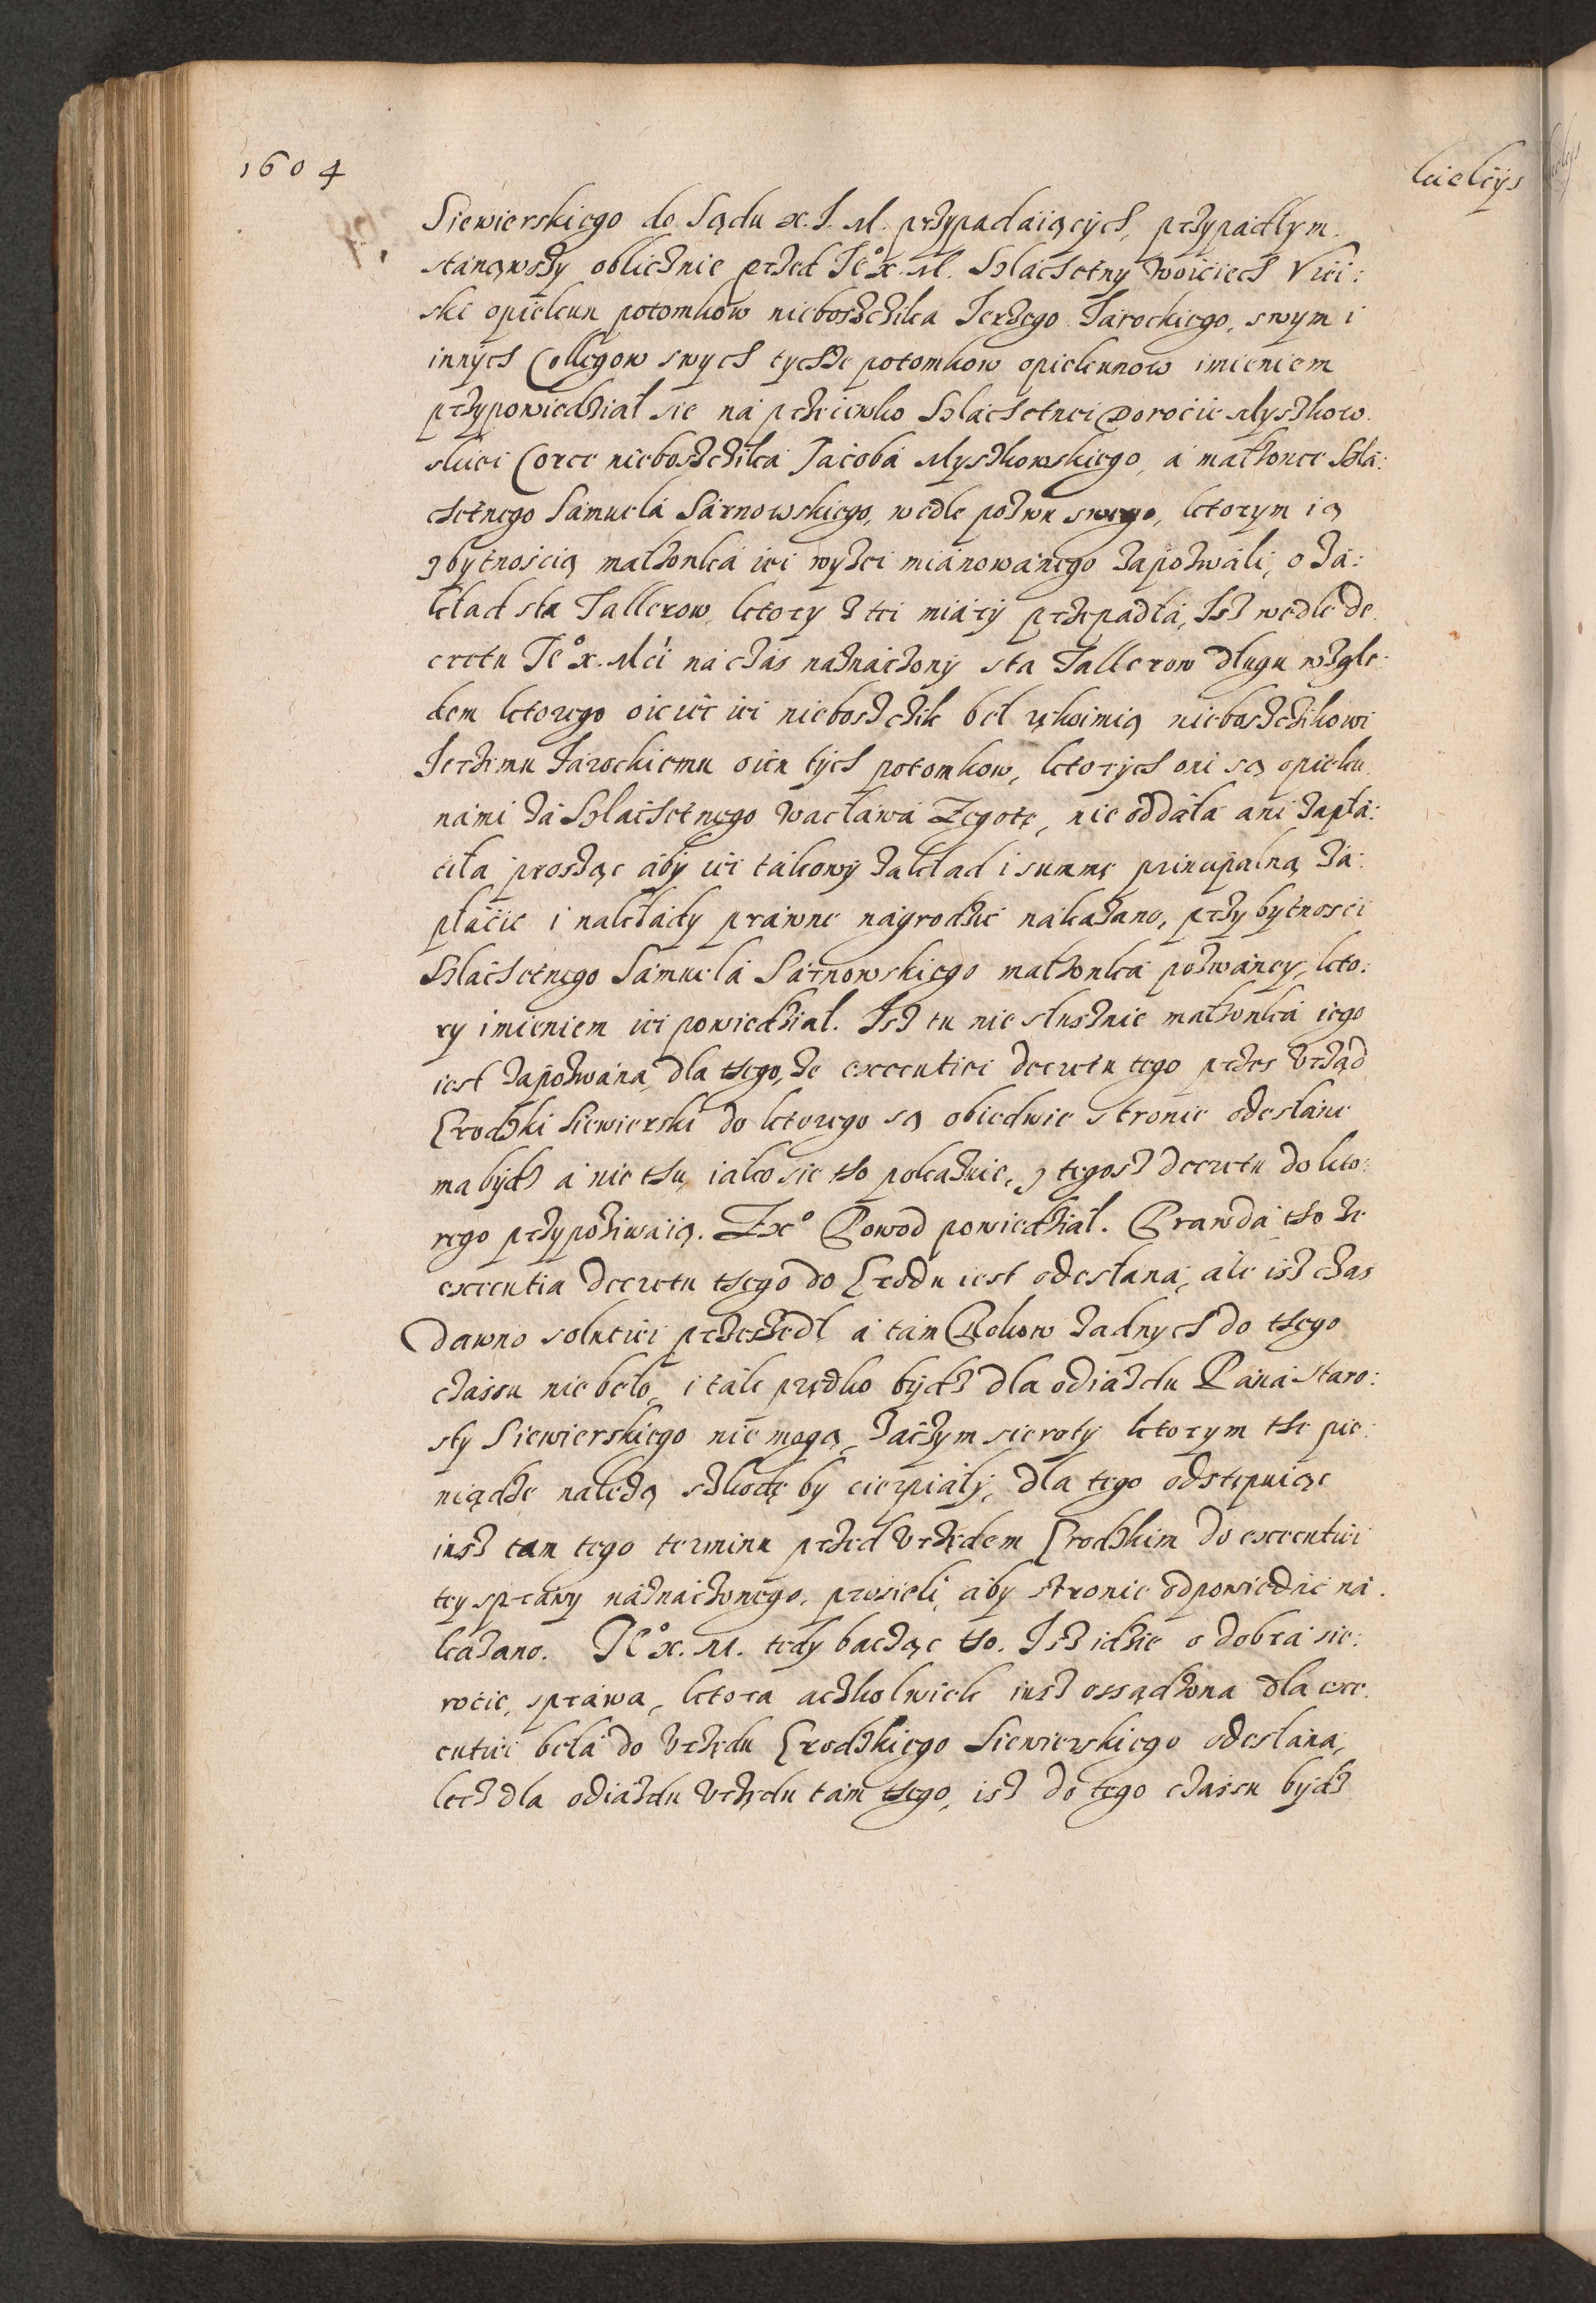 1604
kielcÿs
Siewierskiego do Sądu x. J. M. przÿpadaiącÿch, przÿpadłym
stanąwszÿ oblicznie przed Je° x. M. Szlachetnÿ Woiciech Vici:
ski opiekun potomkow nieboszczika Jerzego Jarockiego, swym i
innÿch Collegow swych tychze potomkow opiekunow imieniem
przÿpowiedział sie na przeciwko Szlachetnei Dorocie Myszkow
skiei Corce nieboszczika Jacoba Myszkowskiego, a małzonce Szla:
chetnego Samuela Sarnowskiego, wedle pozwu swego, ktorym ią
z bÿtnoscią małzonka iei wyzei mianowanego zapozwali, o za:
kład sta Tallerow, ktory z tei miarÿ przepadła, Isz wedle de
cretu Je° x. Mci na czas naznaczonÿ sta Tallerow długu wzgle:
dem ktorego ociec iei nieboszczik beł rękoimią nieboszczikowi
Jerzemu Jarockiemu oicu tÿch potomkow, ktorÿch oni są opieku
nami za Szlachetnego Wacława Zegotę, nie oddała ani zapła:
ciła prosząc abÿ iei takowÿ zakład i summę principalną za:
płacic i nakładÿ prawne nagrodzic nakazano, przÿ bÿtnosci
Szlachetnego Samuela Sarnowskiego małzonka pozwaney, kto:
ry imieniem iei powiedział. Isz tu nie słusznie małzonka iego
iest zapozwana dla thego, ze executiei decretu tego przes Vrząd
Grodzki Siewierski do ktorego są obiedwie stronie odesłane
ma bÿdz a nie thu, iako sie tho pokazuie, z tegosz decretu do kto:
rego przÿpoziwaią. Ex° Powod powiedział. Prawda tho ze
executia decretu thego do Grodu iest odesłana, ale isz czas
dawno solutiei przeszedł a tam Rokow zadnych do thego
czassu nie beło, i tak prędko bÿdz dla odiazdu Pana Staro:
stÿ Siewierskiego nie mogą, zaczym sierotÿ ktorym the pie:
niądze należą szkodę by cierpiałÿ, dla tego odstępuiąc
iusz tam tego terminu przed Vrzędem Grodzkim do executiei
tey sprawÿ naznaczonego, prosieli, abÿ stronie odpowiedac na
kazano. Je° x. M. tedy bacząc tho. Isz idzie o dobra sie:
rocie, sprawa, ktora aczkolwiek iusz ossądzona dla exe
cutiei beła do Vrzędu Grodzkiego Siewierskiego odesłana,
lecz dla odiazdu Vrzędu tam thego, isz do tego czassu bÿdz